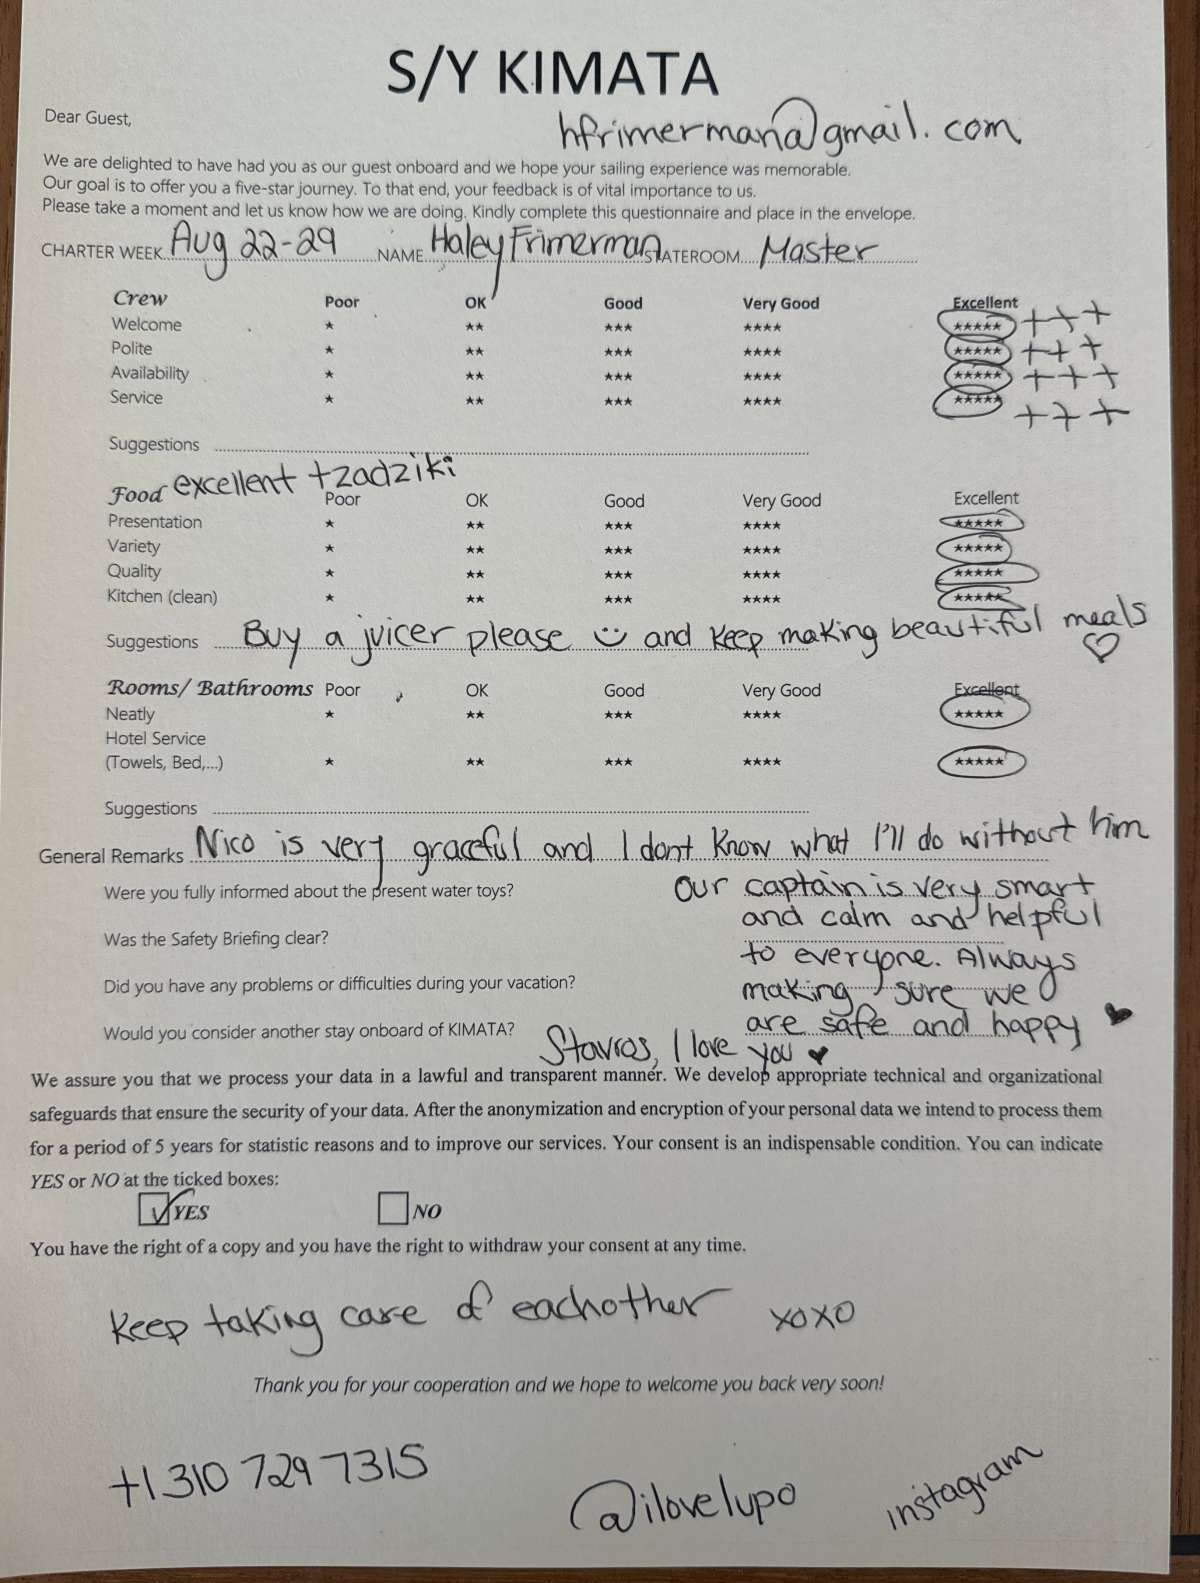 S/Y KIMATA
Dear Guest,
hfrimerman@gmail.com
We are delighted to have had you as our guest onboard and we hope your sailing experience was memorable.
Our goal is to offer you a five-star journey. To that end, your feedback is of vital importance to us.
Please take a moment and let us know how we are doing. Kindly complete this questionnaire and place in the envelope.
CHARTER WEEK Aug 22-29 NAME Haley Frimerman STATEROOM Master
Crew Poor OK Good Very Good Excellent
Welcome ★ ★★ ★★★ ★★★★ ★★★★★ +++
Polite ★ ★★ ★★★ ★★★★ ★★★★★ +++
Availability ★ ★★ ★★★ ★★★★ ★★★★★ +++
Service ★ ★★ ★★★ ★★★★ ★★★★★ +++
Suggestions
excellent tzadziki
Food Poor OK Good Very Good Excellent
Presentation ★ ★★ ★★★ ★★★★ ★★★★★
Variety ★ ★★ ★★★ ★★★★ ★★★★★
Quality ★ ★★ ★★★ ★★★★ ★★★★★
Kitchen (clean) ★ ★★ ★★★ ★★★★ ★★★★★
Suggestions Buy a juicer please ☺ and keep making beautiful meals ♡
Rooms/ Bathrooms Poor OK Good Very Good Excellent
Neatly ★ ★★ ★★★ ★★★★ ★★★★★
Hotel Service
(Towels, Bed,...) ★ ★★ ★★★ ★★★★ ★★★★★
Suggestions
General Remarks Nico is very graceful and I dont know what I'll do without him
Were you fully informed about the present water toys?
our captain is very smart
and calm and helpful
Was the Safety Briefing clear?
to everyone. Always
Did you have any problems or difficulties during your vacation?
making sure we
are safe and happy ♥
Would you consider another stay onboard of KIMATA?
Stavros, I love you ♥
We assure you that we process your data in a lawful and transparent manner. We develop appropriate technical and organizational
safeguards that ensure the security of your data. After the anonymization and encryption of your personal data we intend to process them
for a period of 5 years for statistic reasons and to improve our services. Your consent is an indispensable condition. You can indicate
YES or NO at the ticked boxes:
☑ YES ☐ NO
You have the right of a copy and you have the right to withdraw your consent at any time.
keep taking care of eachother xoxo
Thank you for your cooperation and we hope to welcome you back very soon!
+1 310 729 7315
@ilovelupo
instagram